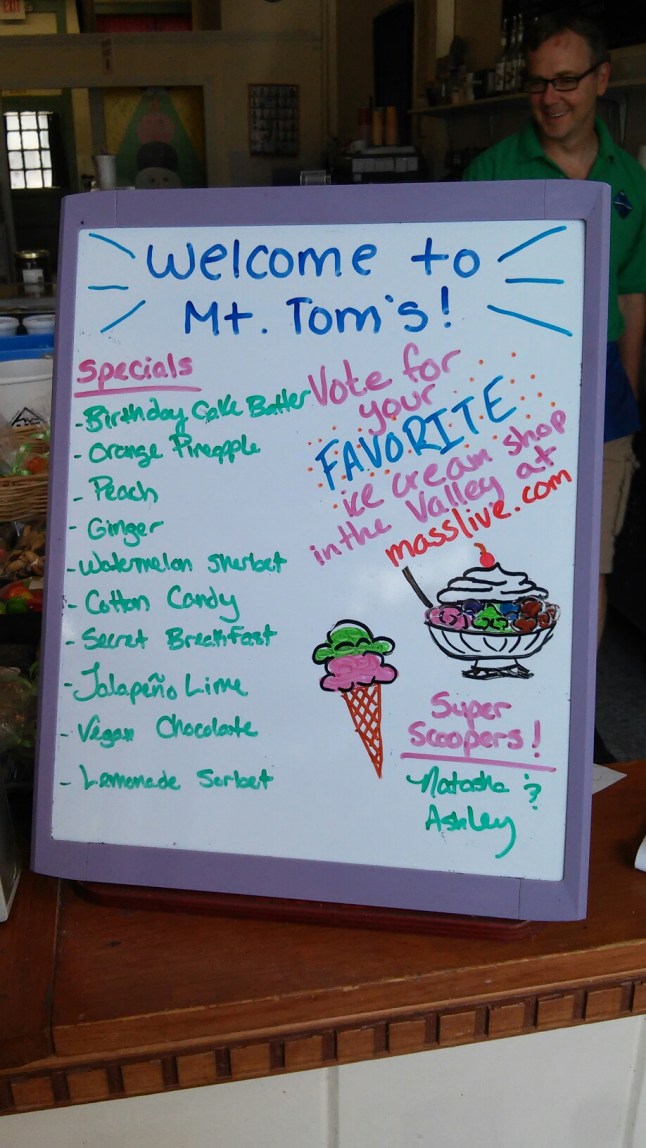 EXIT
Welcome to
Mt. Tom's!
Specials
- Birthday Cake Batter
- Orange Pineapple
- Peach
- Ginger
- Watermelon Sherbet
- Cotton Candy
- Secret Breakfast
- Jalapeño Lime
- Vegan Chocolate
- Lemonade Sorbet
Vote for
your
FAVORITE
ice cream shop
in the Valley at
masslive.com
Super
Scoopers!
Natasha &
Ashley